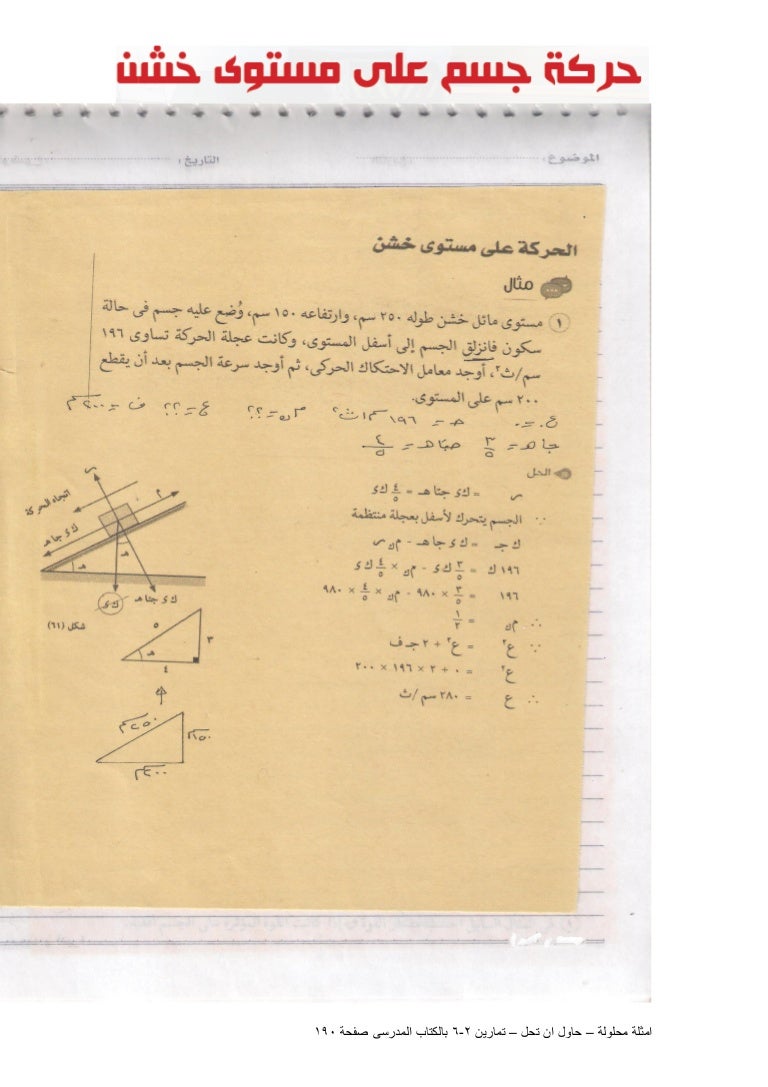 حركة جسم على مستوى خشن
الموضوع:
التاريخ:
الحركة على مستوى خشن
مثال
١ مستوى مائل خشن طوله ٢٥٠ سم، وارتفاعه ١٥٠ سم، وُضع عليه جسم فى حالة
سكون فانزلق الجسم إلى أسفل المستوى، وكانت عجلة الحركة تساوى ١٩٦
سم/ث٢، أوجد معامل الاحتكاك الحركى، ثم أوجد سرعة الجسم بعد أن يقطع
٢٠٠ سم على المستوى.
ع. = ٠ حـ = ١٩٦ سم/ث٢ م ك = ؟؟ ع = ؟؟ ف = ٢٠٠ سم
جا هـ = ٣/٥ جتا هـ = ٤/٥
الحل
ر = ك د جتا هـ = ٤/٥ ك د
∵ الجسم يتحرك لأسفل بعجلة منتظمة
ك جـ = ك د جا هـ - م ك ر
١٩٦ ك = ٣/٥ ك د - م ك × ٤/٥ ك د
١٩٦ = ٣/٥ × ٩٨٠ - م ك × ٤/٥ × ٩٨٠
∴ م ك = ١/٢
∵ ع٢ = ع.٢ + ٢ جـ ف
ع٢ = ٠ + ٢ × ١٩٦ × ٢٠٠
∴ ع = ٢٨٠ سم/ث
ر
اتجاه الحركة
م
ك د جا هـ
هـ
هـ
ك د جتا هـ
ك د
شكل (٦١)
٥
٣
هـ
٤
٢٥٠ سم
١٥٠
٢٠٠ سم
امثلة محلولة – حاول ان تحل – تمارين ٢-٦ بالكتاب المدرسى صفحة ١٩٠